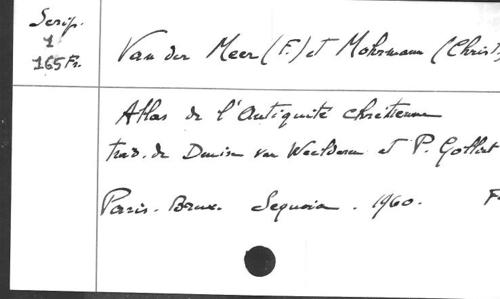 Scrip.
1
165 Fr.
Van der Meer (F.) et Mohrmann (Christ
Atlas de l'Antiquité chrétienne
trad. de Denise van Weelderen et P. Gollart
Paris. Brux. Sequoia. 1960. F